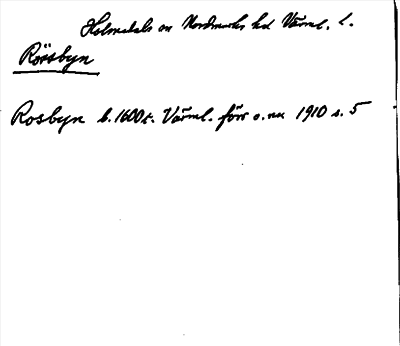 Holmedals sn Nordmarks hd Värml. l.
Rörsbyn
Rosbyn b. 1600t. Värml. förr o. nu 1910 s. 5